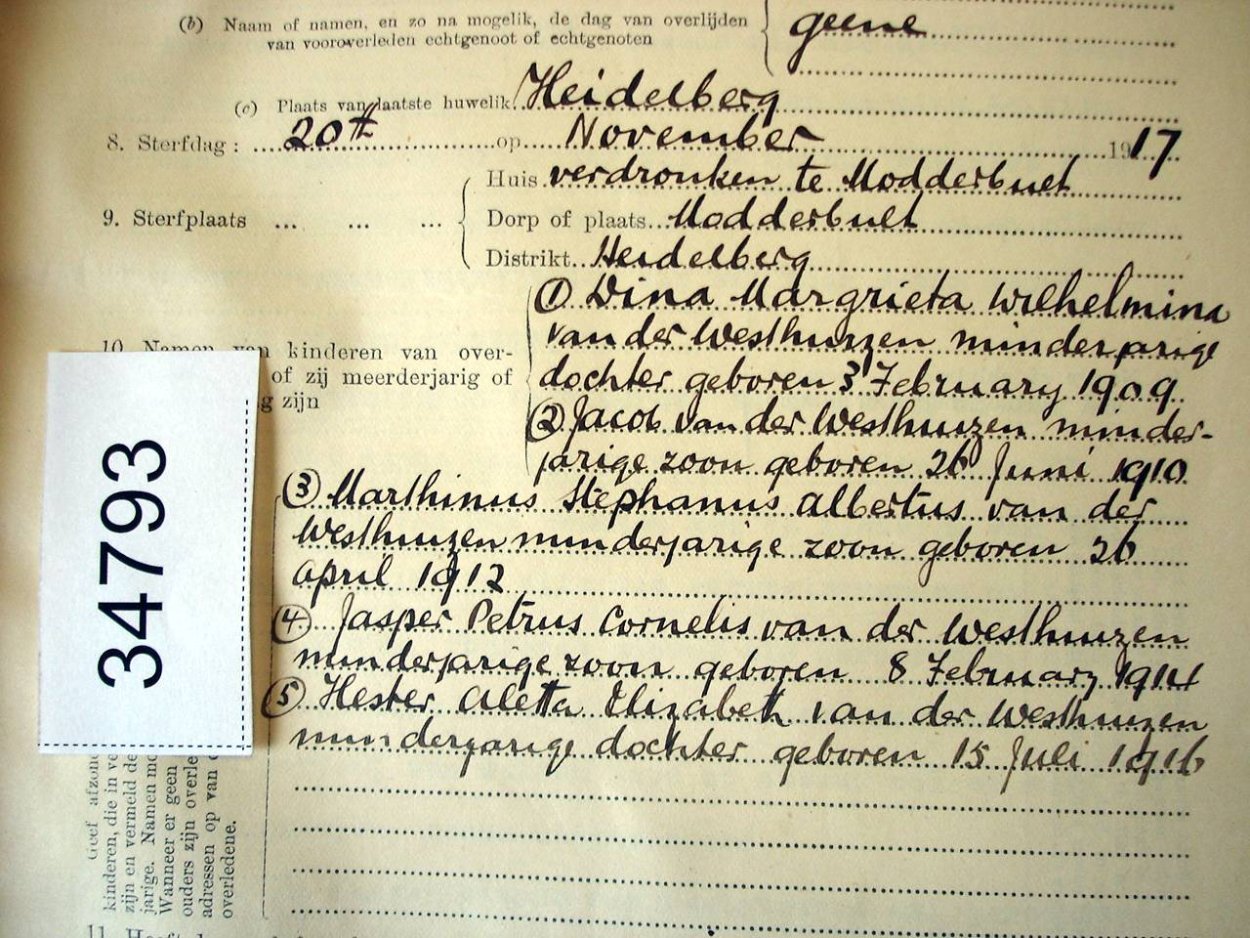 (b) Naam of namen, en zo na mogelik, de dag van overlijden
van vooroverleden echtgenoot of echtgenoten
geene
(c) Plaats van laatste huwelik. Heidelberg
8. Sterfdag: 20st op November 1917
9. Sterfplaats ... ... ...
Huis verdronken te Modderbult
Dorp of plaats Modderbult
Distrikt Heidelberg
10. Namen van kinderen van over-
of zij meerderjarig of
zijn
(1) Dina Margrieta Wilhelmina
van der Westhuizen minderjarige
dochter geboren 3 February 1909
(2) Jacob van der Westhuizen minder-
jarige zoon geboren 26 Juni 1910
(3) Marthinus Stephanus Albertus van der
Westhuizen minderjarige zoon geboren 26
April 1912
(4) Jasper Petrus Cornelis van der Westhuizen
minderjarige zoon geboren 8 February 1914
(5) Hester Aletta Elizabeth van der Westhuizen
minderjarige dochter geboren 15 Juli 1916
34793
Geef afzond
kinderen, die in ve
zijn en vermeld de
jarige. Namen mo
Wanneer er geen
ouders zijn overle
adressen op van
overledene.
11.